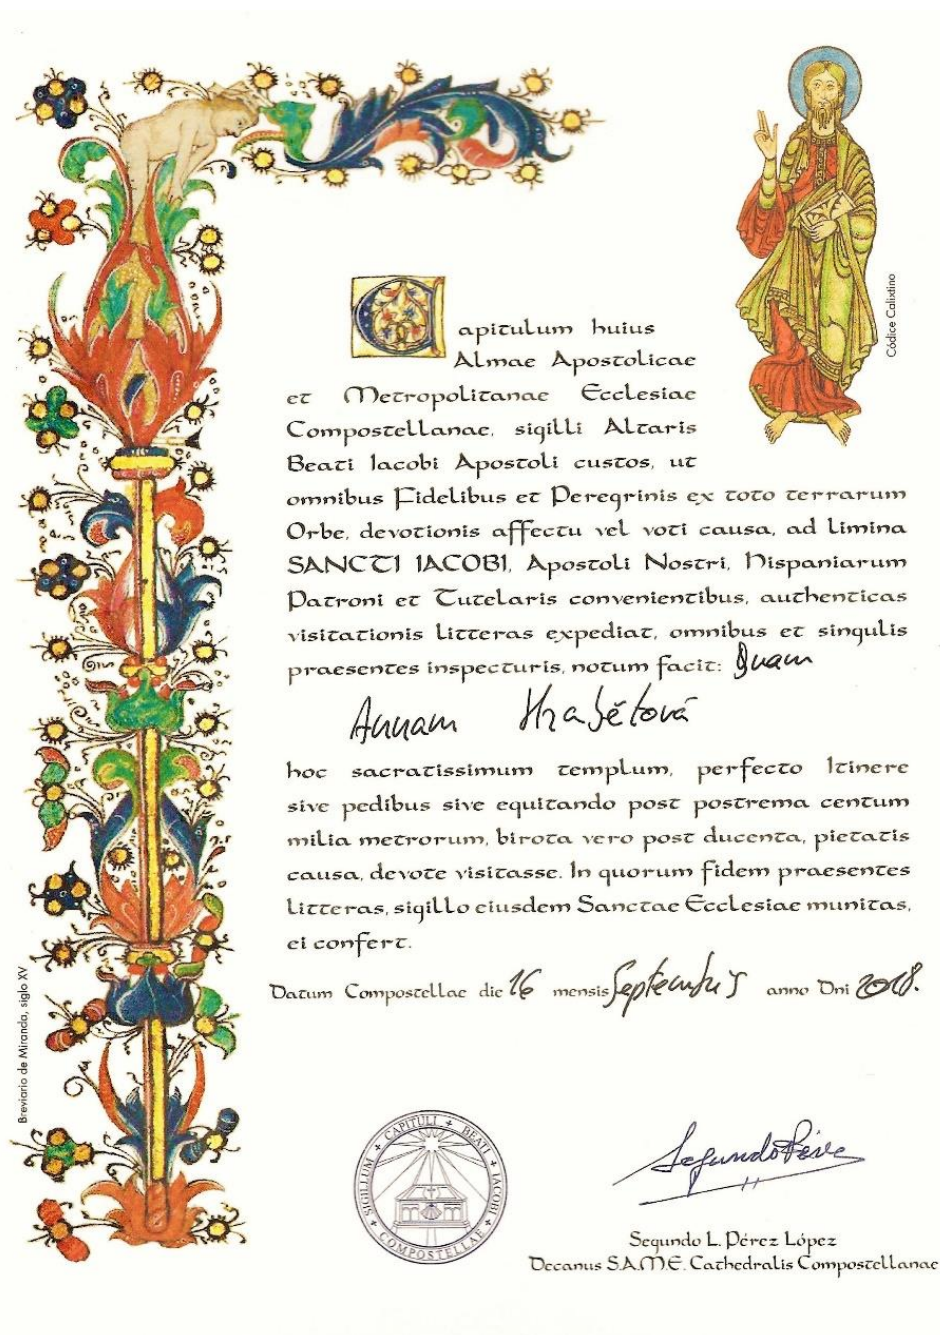 Códice Calixtino
Capitulum huius
Almae Apostolicae
et Metropolitanae Ecclesiae
Compostellanae, sigilli Altaris
Beati Iacobi Apostoli custos, ut
omnibus Fidelibus et Peregrinis ex toto terrarum
Orbe, devotionis affectu vel voti causa, ad limina
SANCTI IACOBI, Apostoli Nostri, Hispaniarum
Patroni et Tutelaris convenientibus, authenticas
visitationis litteras expediat, omnibus et singulis
praesentes inspecturis, notum facit: Dnam
Annam Hrabětová
hoc sacratissimum templum, perfecto Itinere
sive pedibus sive equitando post postrema centum
milia metrorum, birota vero post ducenta, pietatis
causa, devote visitasse. In quorum fidem praesentes
litteras, sigillo eiusdem Sanctae Ecclesiae munitas,
ei confert.
Datum Compostellae die 16 mensis Septembris anno Dni 2018.
Breviario de Miranda, siglo XV
SIGILLUM + CAPITULI + BEATI + IACOBI + COMPOSTELLAE +
Segundo Pérez
Segundo L. Pérez López
Decanus S.A.M.E. Cathedralis Compostellanae